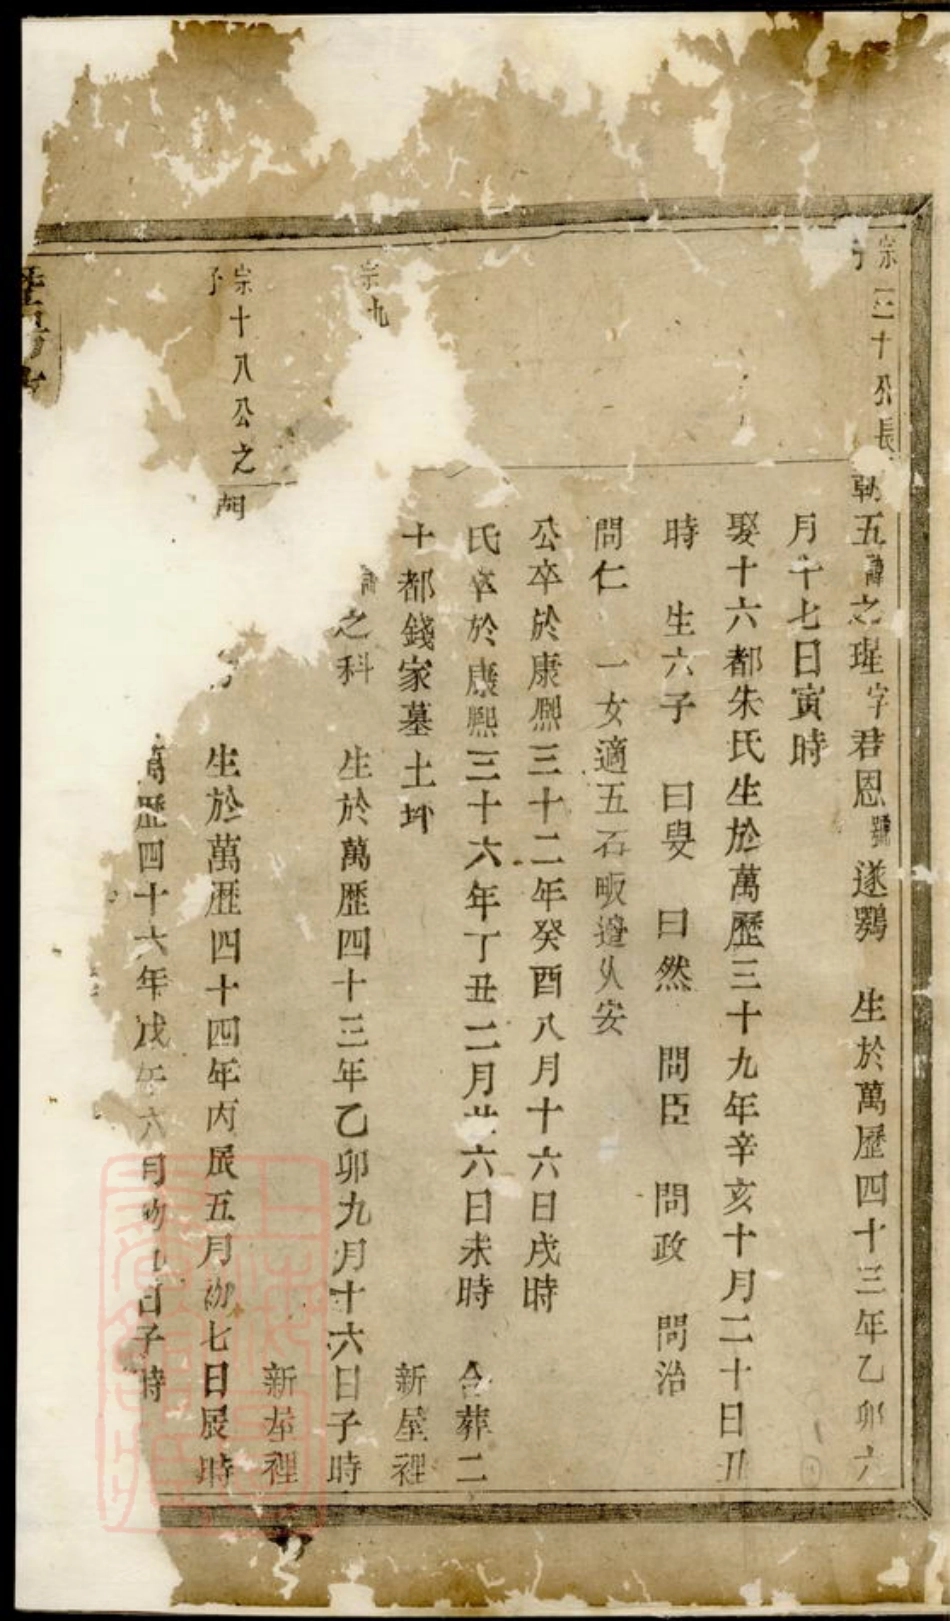 宗三十公長
子
朝五諱之瑆字君恩號遂鶚　生於萬歷四十三年乙卯六
月十七日寅時
娶十六都朱氏生於萬歷三十九年辛亥十月二十日丑
時　生六子　曰叟　曰然　問臣　問政　問治
問仁　一女適五石畈邊以安
公卒於康熙三十二年癸酉八月十六日戌時
氏卒於康熙三十六年丁丑二月廿六日未時　合葬二
十都錢家墓土坪　新屋裡
宗九
諱之科　生於萬歷四十三年乙卯九月十六日子時
新屋裡
宗十八公之
子
朝
生於萬歷四十四年丙辰五月初七日辰時
萬歷四十六年戊午六月初日子時